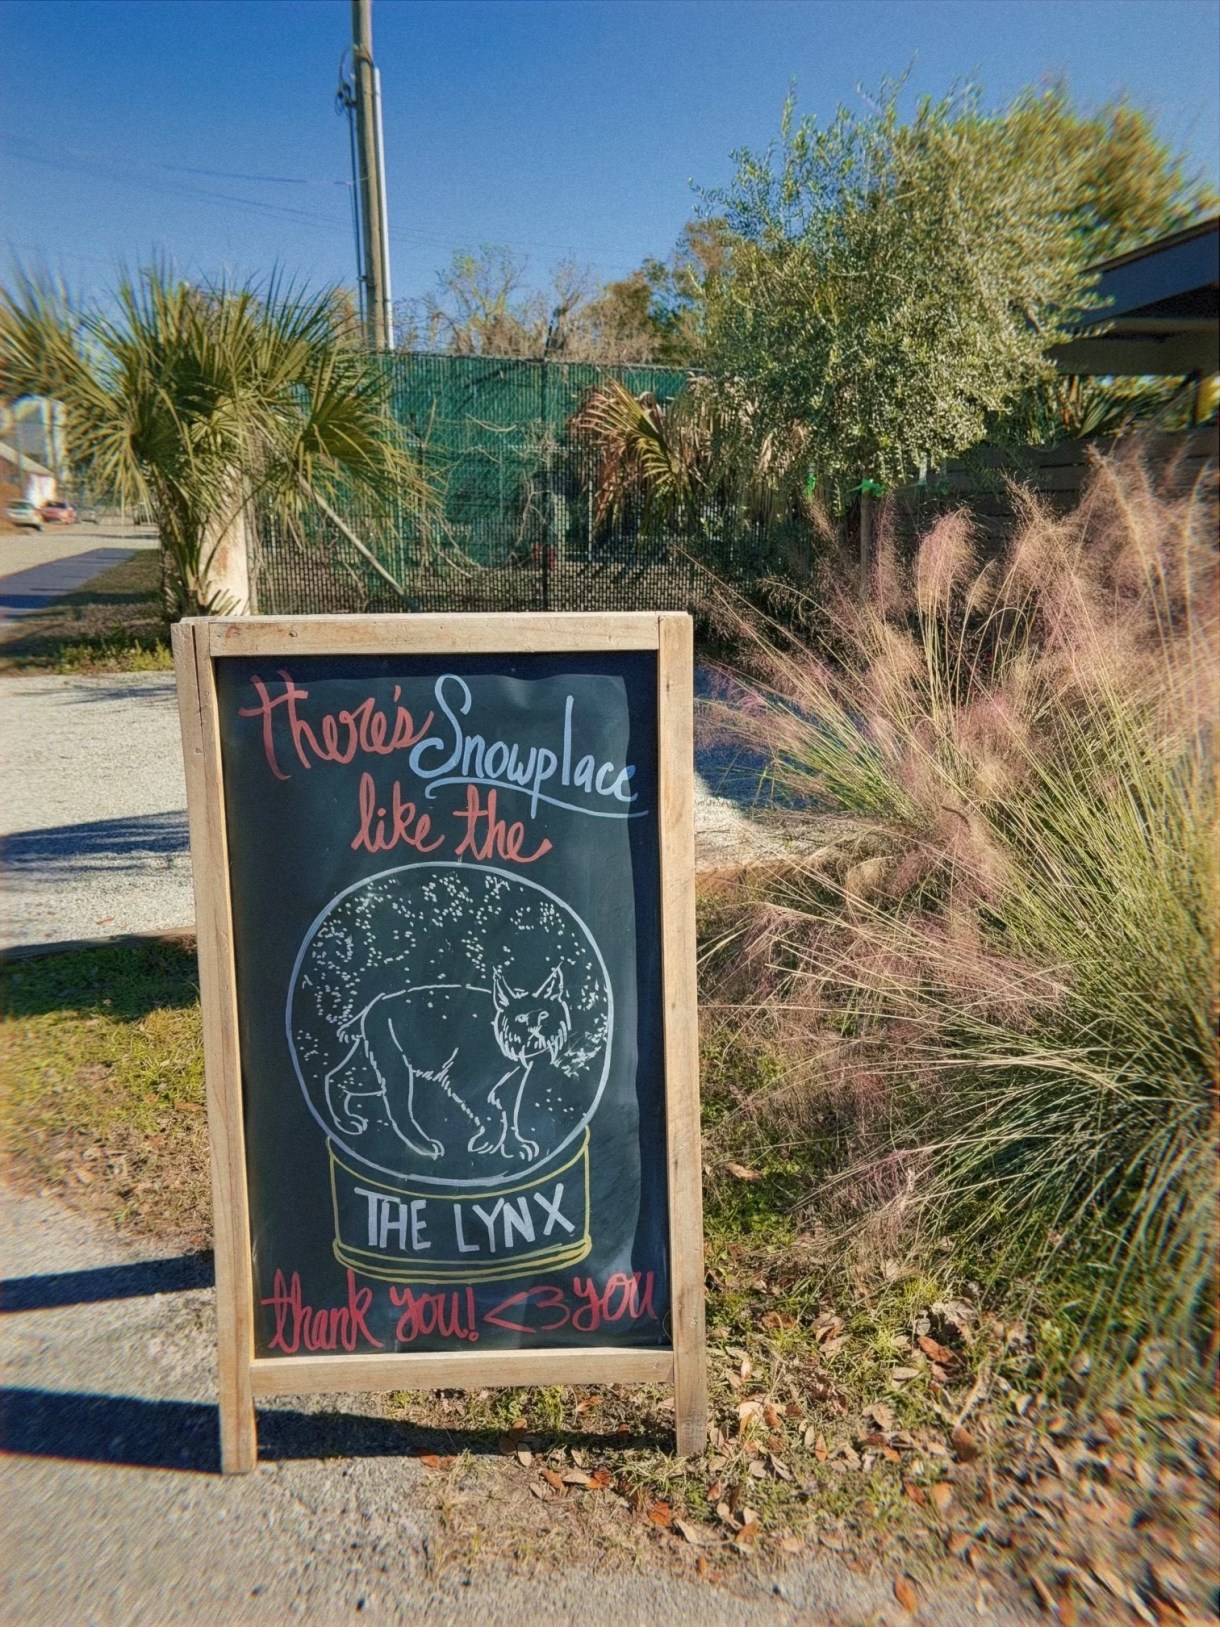 there's Snowplace
like the
THE LYNX
thank you! <3 you